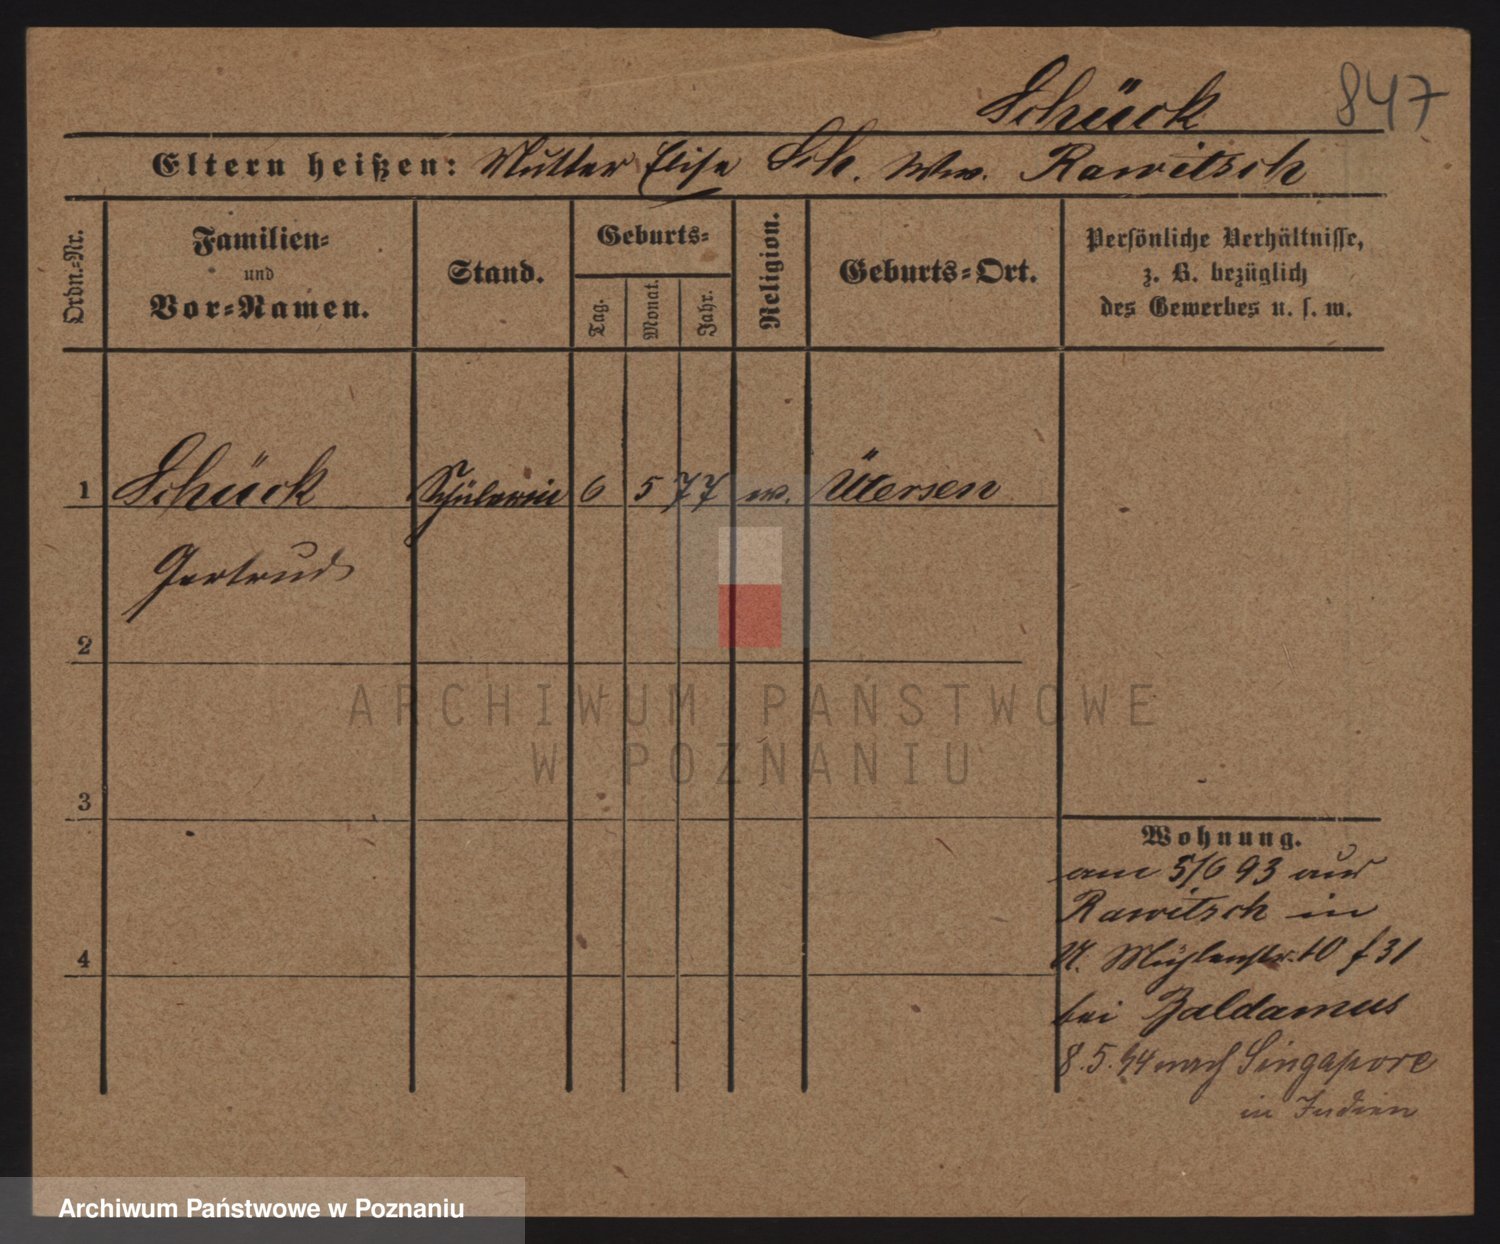 Schück 847
Eltern heißen: Mutter Elise Sch. Ww. Rawitsch
Ordn.-Nr.
Familien-
und
Vor-Namen.
Stand.
Geburts-
Tag.
Monat.
Jahr.
Religion.
Geburts-Ort.
Persönliche Verhältnisse,
z. B. bezüglich
des Gewerbes u. s. w.
1 Schück Schülerin 6 5 77 ev. Ütersen
Gertrud
2
3
4
Wohnung.
am 5/6 93 aus
Rawitsch in
U. Mühlenstr. 10 f 31
bei Baldamus
8. 5. 94 nach Singapore
in Indien
ARCHIWUM PAŃSTWOWE
W POZNANIU
Archiwum Państwowe w Poznaniu